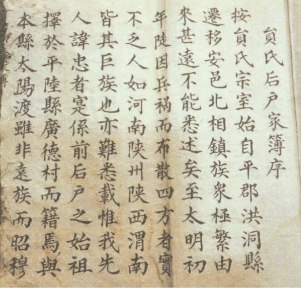 貟氏后戶家簿序
按貟氏宗室始自平郡洪洞縣
遷移安邑北相鎮族衆極繁由
來甚遠不能悉述矣至太明初
年陡因兵禍而布散四方者實
不乏人如河南陝州陝西渭南
皆其巨族也亦難悉載惟我先
人諱忠者寔係前后戶之始祖
擇於平陸縣廣德村而籍焉與
本縣太陽渡雖非遠族而昭穆